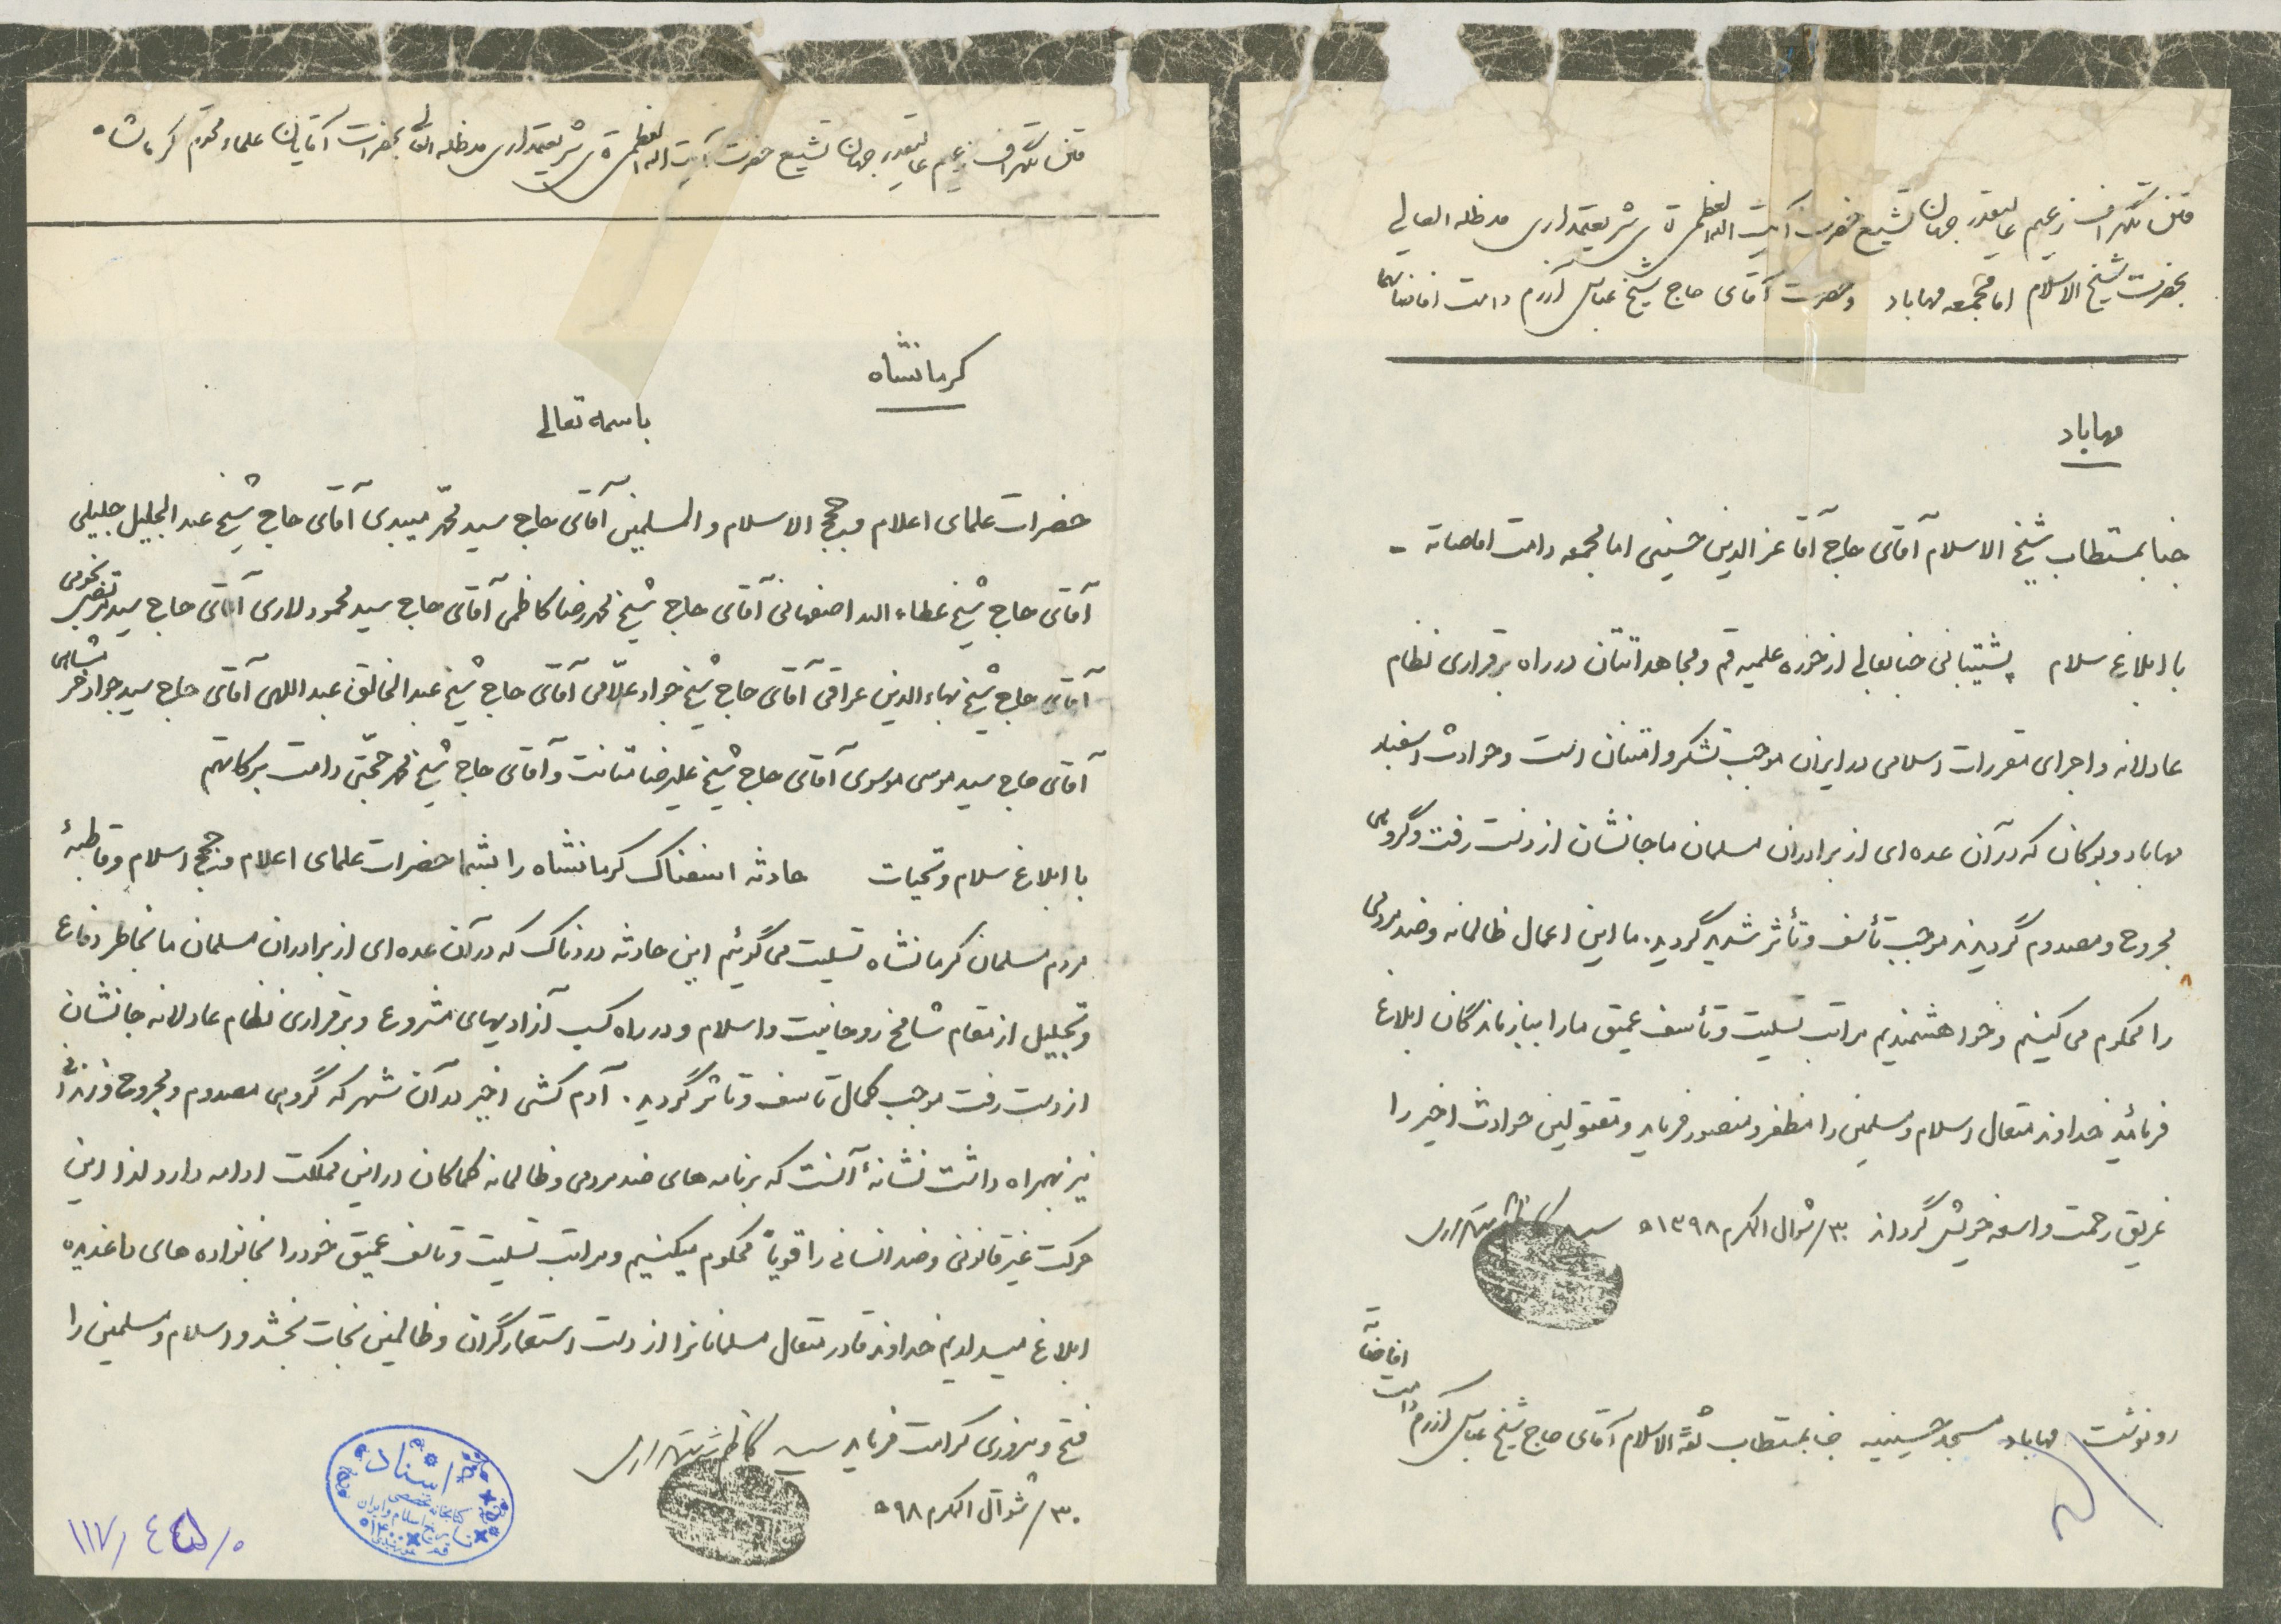 متن تلگراف زعیم عالیقدر جهان تشیع حضرت آیت الله العظمی آقای شریعتمداری مدظله العالی
بحضرت شیخ الاسلام امام جمعه مهاباد و حضرت آقای حاج شیخ عباس آذرم دامت افاضاتهما
مهاباد
جناب مستطاب شیخ الاسلام آقای حاج آقا عزالدین حسینی امام جمعه دامت افاضاته -
با ابلاغ سلام پشتیبانی جنابعالی از حوزه علمیه قم و مجاهداتتان در راه برقراری نظام
عادلانه و اجرای مقررات اسلامی در ایران موجب تشکر و امتنان است و حوادث اسفبار
مهاباد و بوکان که در آن عده ای از برادران مسلمان ما جانشان از دست رفت و گروهی
مجروح و مصدوم گردیدند موجب تأسف و تأثر شدید گردید. ما این اعمال ظالمانه و ضد مردمی
را محکوم می کنیم و خواهشمندیم مراتب تسلیت و تأسف عمیق ما را ببازماندگان ابلاغ
فرمائید خداوند متعال اسلام و مسلمین را مظفر و منصور فرماید و مقتولین حوادث اخیر را
غریق رحمت واسعه خویش گرداند ۳۰/ شوال المکرم ۱۳۹۸ ه سید کاظم شریعتمداری
رونوشت مهاباد مسجد حسینیه جناب مستطاب ثقة الاسلام آقای حاج شیخ عباس آذرم دامت افاضاته
متن تلگراف زعیم عالیقدر جهان تشیع حضرت آیت الله العظمی آقای شریعتمداری مدظله العالی بحضرات آقایان علماء محترم کرمانشاه
کرمانشاه
باسمه تعالی
حضرات علمای اعلام و حجج الاسلام و المسلمین آقای حاج سید محمد میبدی آقای حاج شیخ عبدالجلیل جلیلی
آقای حاج شیخ عطاء الله اصفهانی آقای حاج شیخ محمد رضا کاظمی آقای حاج سید محمود لاری آقای حاج سید مرتضی نجومی
آقای حاج شیخ بهاء الدین عراقی آقای حاج شیخ جواد علّامی آقای حاج شیخ عبدالخالق عبداللهی آقای حاج سید جواد خرمشاهی
آقای حاج سید موسی موسوی آقای حاج شیخ علیرضا متانت و آقای حاج شیخ محمد حجّتی دامت برکاتهم
با ابلاغ سلام و تحیات حادثه اسفناک کرمانشاه را بشما حضرات علمای اعلام و حجج اسلام و قاطبهٔ
مردم مسلمان کرمانشاه تسلیت می گوئیم این حادثه دردناک که در آن عده ای از برادران مسلمان ما بخاطر دفاع
و تجلیل از مقام شامخ روحانیت و اسلام و در راه کسب آزادیهای مشروع و برقراری نظام عادلانه جانشان
از دست رفت موجب کمال تاسف و تاثر گردید. آدم کشی اخیر در آن شهر که گروهی مصدوم و مجروح و زندانی
نیز بهمراه داشت نشانهٔ آنست که برنامه های ضد مردمی و ظالمانه کماکان در این مملکت ادامه دارد لذا این
حرکت غیر قانونی و ضد انسانی را قویاً محکوم میکنیم و مراتب تسلیت و تاسف عمیق خود را بخانواده های داغدیده
ابلاغ میداریم خداوند قادر متعال مسلمانانرا از دست استعمارگران و ظالمین نجات بخشد و اسلام و مسلمین را
فتح و پیروزی کرامت فرماید سید کاظم شریعتمداری
۳۰/ شوال المکرم ۹۸ ه
اسناد
کتابخانه تخصصی
تاریخ اسلام و ایران